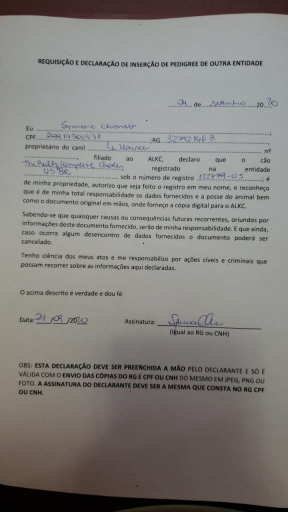 REQUISIÇÃO E DECLARAÇÃO DE INSERÇÃO DE PEDIGREE DE OUTRA ENTIDADE
24 de setembro 2020
Eu
CPF RG
proprietário do canil nº
, filiado ao ALKC, declaro que o cão
registrado na entidade
sob o número de registro , é
de minha propriedade, autorizo que seja feito o registro em meu nome, e reconheço
que é de minha total responsabilidade os dados fornecidos e a posse do animal bem
como o documento original em mãos, onde forneço a cópia digital para o ALKC.
Sabendo-se que quaisquer causas ou consequências futuras recorrentes, oriundos por
informações deste documento fornecido, serão de minha responsabilidade. E que ainda,
caso ocorra algum desencontro de dados fornecidos o documento poderá ser
cancelado.
Tenho ciência dos meus atos e me responsabilizo por ações civeis e criminais que
possam recorrer sobre as informações aqui declaradas.
O acima descrito é verdade e dou fé
Data: 24 /09 /2020 Assinatura:
(Igual ao RG ou CNH)
OBS: ESTA DECLARAÇÃO DEVE SER PREENCHIDA A MÃO PELO DECLARANTE E SÓ É
VÁLIDA COM O ENVIO DAS CÓPIAS DO RG E CPF OU CNH DO MESMO EM JPEG, PNG OU
FOTO. A ASSINATURA DO DECLARANTE DEVE SER A MESMA QUE CONSTA NO RG CPF
OU CNH.